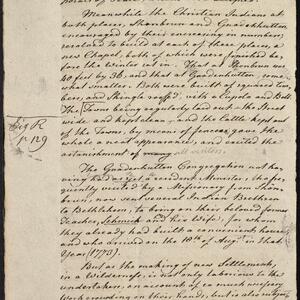 Meanwhile the Christian Indians at
both places, Shönbrun and Guadenhutten,
encouraged by their encreasing in numbers,
resolved to build at each of these places, a
new Chapel, both of which were finished be-
fore the winter set in. That at Shonbrun was
40 feet by 36, and that at Guadenhutten, some
what smaller. Both were built of squared tim-
ber, and Shingle roof'd with a Cupola and Bell.
The Towns being regularly laid out, the Street
wide and kept clean, and the Cattle kept out
of the Towns, by means of fences, gave the
whole a neat appearance, and excited the
astonishment of
The Gnadenhutten Congregation not ha-
ving had as yet a resident Minister, but fre-
quently visited by a Missionary from Shön-
brun, now sent several Indian Brethren
to Bethlehem, to bring on their beloved former
Teacher, Schmick and his Wife, for whom
they already had built a convenient house,
and who arrived on the 16th of Augt. in that
Year (1773).
But as the making of new Settlements,
in a Wilderness, is not only laborious to the
undertaken, on account of so much necessary
work crowding on their hands, but also